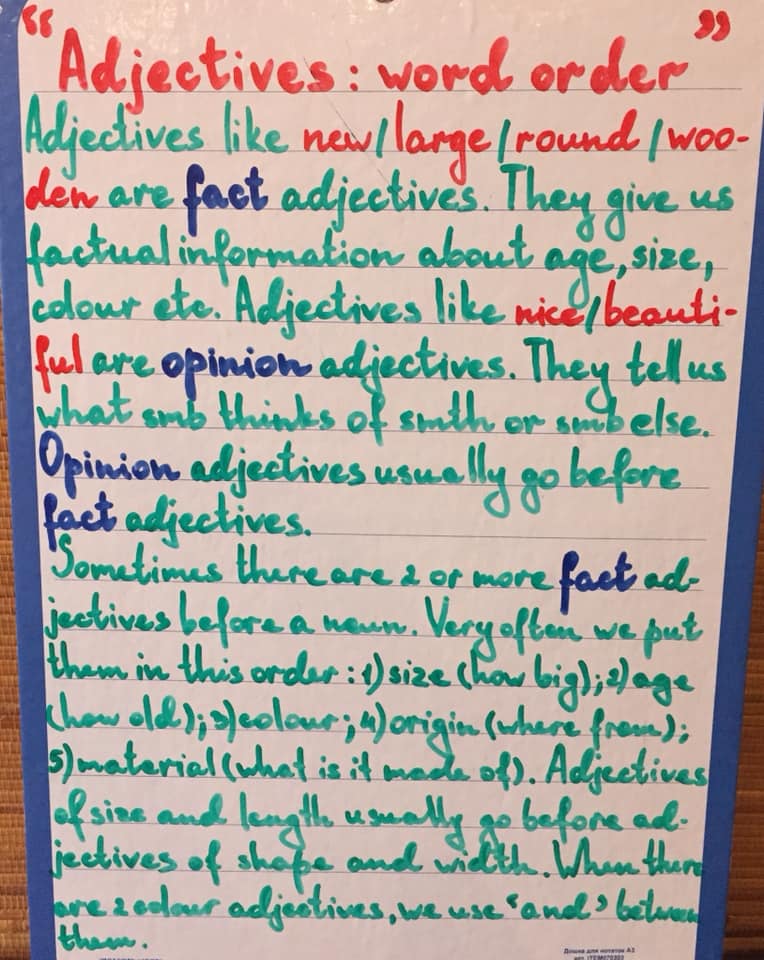 “ ”
Adjectives: word order
Adjectives like new/large/round/woo-
den are fact adjectives. They give us
factual information about age, size,
colour etc. Adjectives like nice/beauti-
ful are opinion adjectives. They tell us
what smb thinks of smth or smb else.
Opinion adjectives usually go before
fact adjectives.
Sometimes there are 2 or more fact ad-
jectives before a noun. Very often we put
them in this order: 1) size (how big); 2) age
(how old); 3) colour; 4) origin (where from);
5) material (what is it made of). Adjectives
of size and length usually go before ad-
jectives of shape and width. When there
are 2 colour adjectives, we use ‘and’ between
them.
Дошка для нотаток А3